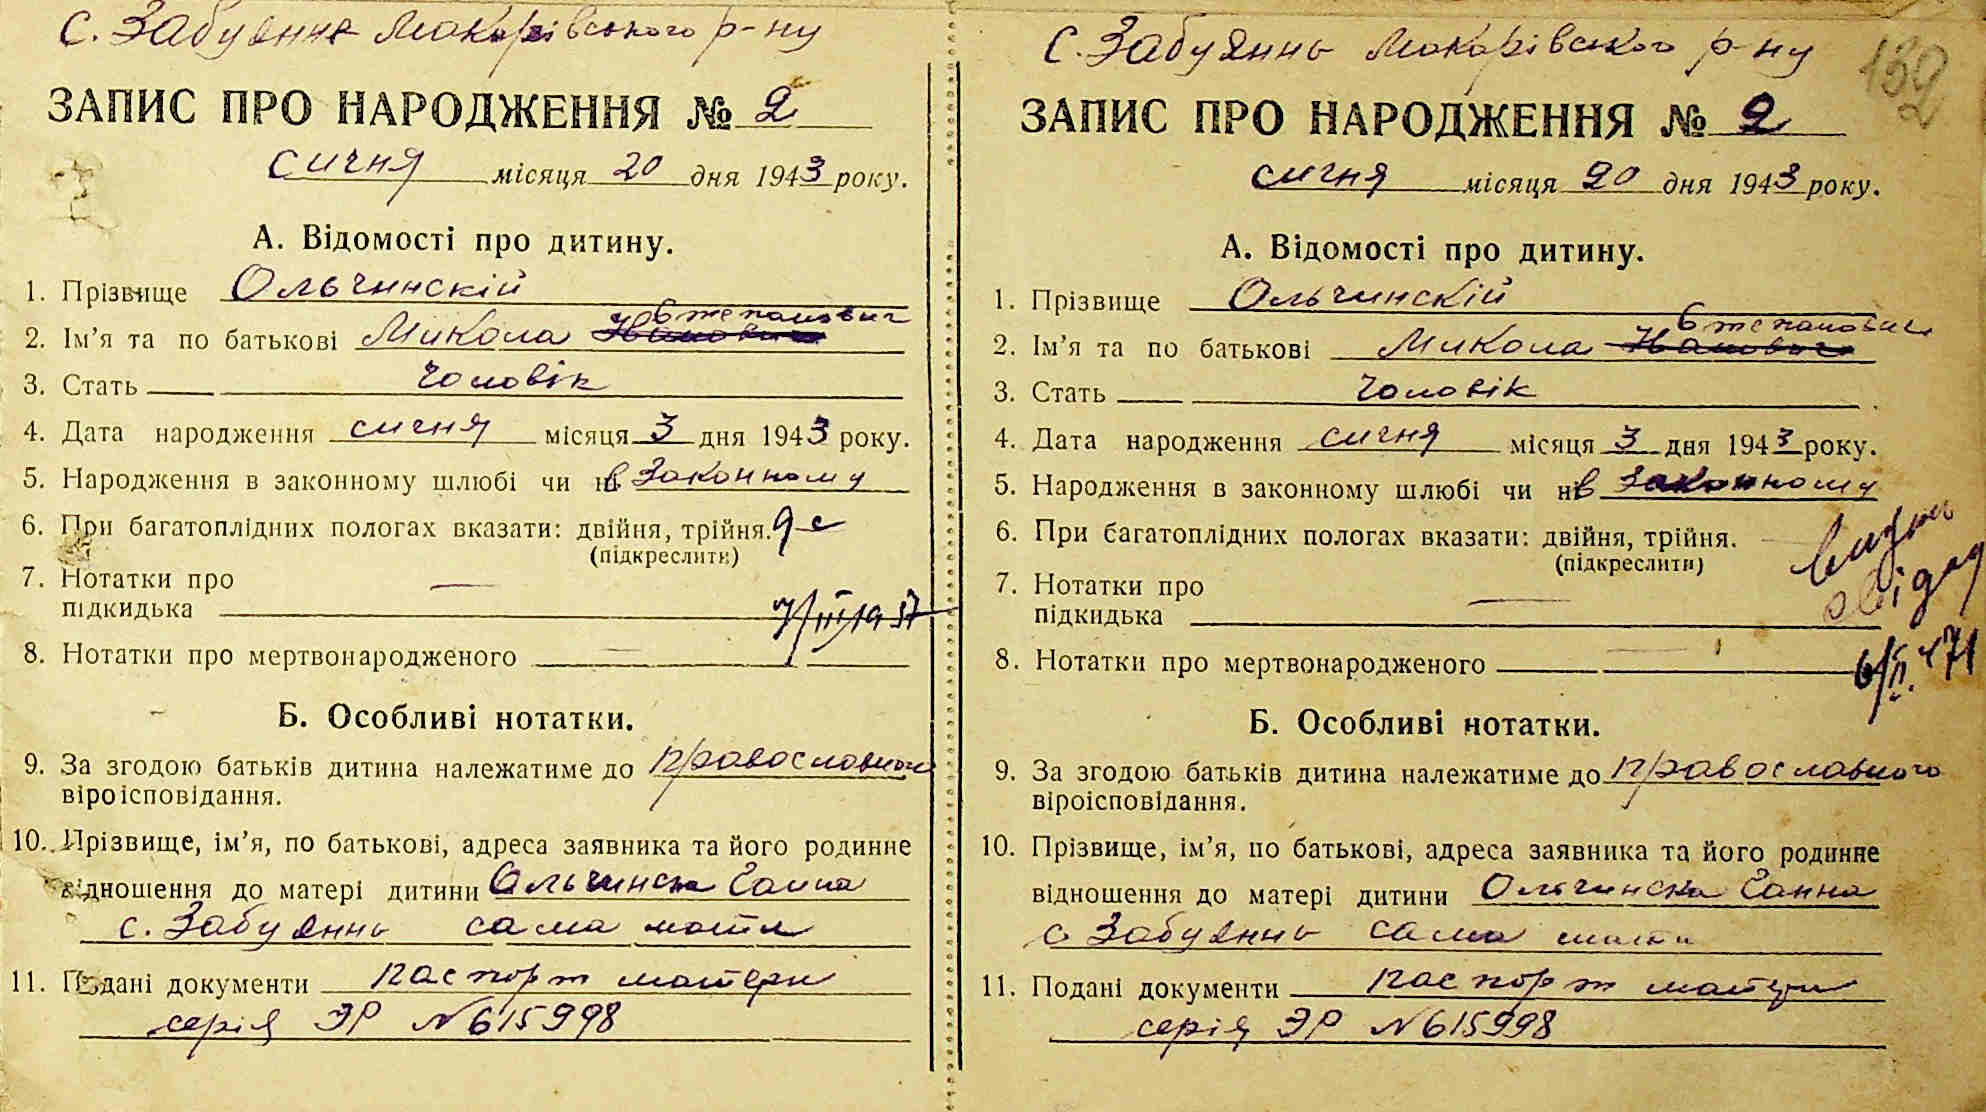 с. Забуяння Макарівського р-ну
ЗАПИС ПРО НАРОДЖЕННЯ № 2
сичня місяця 20 дня 1943 року.
А. Відомості про дитину.
1. Прізвище Ольчинскій
2. Ім'я та по батькові Микола Степанович
3. Стать чоловік
4. Дата народження сичня місяця 3 дня 1943 року.
5. Народження в законному шлюбі чи в законному
6. При багатоплідних пологах вказати: двійня, трійня.
(підкреслити)
7. Нотатки про —
підкидька
7/III 1957
8. Нотатки про мертвонародженого —
Б. Особливі нотатки.
9. За згодою батьків дитина належатиме до православного
віроісповідання.
10. Прізвище, ім'я, по батькові, адреса заявника та його родинне
відношення до матері дитини Ольчинска Ганна
с. Забуяннь сама мати
11. Подані документи паспорт матери
серія ЭР №615998
с. Забуяннь Макарівського р-ну
132
ЗАПИС ПРО НАРОДЖЕННЯ № 2
сичня місяця 20 дня 1943 року.
А. Відомості про дитину.
1. Прізвище Ольчинскій
2. Ім'я та по батькові Микола Степанович
3. Стать чоловік
4. Дата народження сичня місяця 3 дня 1943 року.
5. Народження в законному шлюбі чи в законному
6. При багатоплідних пологах вказати: двійня, трійня.
(підкреслити)
7. Нотатки про —
підкидька
8. Нотатки про мертвонародженого —
6/II. 71
Б. Особливі нотатки.
9. За згодою батьків дитина належатиме до православного
віроісповідання.
10. Прізвище, ім'я, по батькові, адреса заявника та його родинне
відношення до матері дитини Ольчинска Ганна
с Забуяннь сама мати
11. Подані документи паспорт матери
серія ЭР №615998